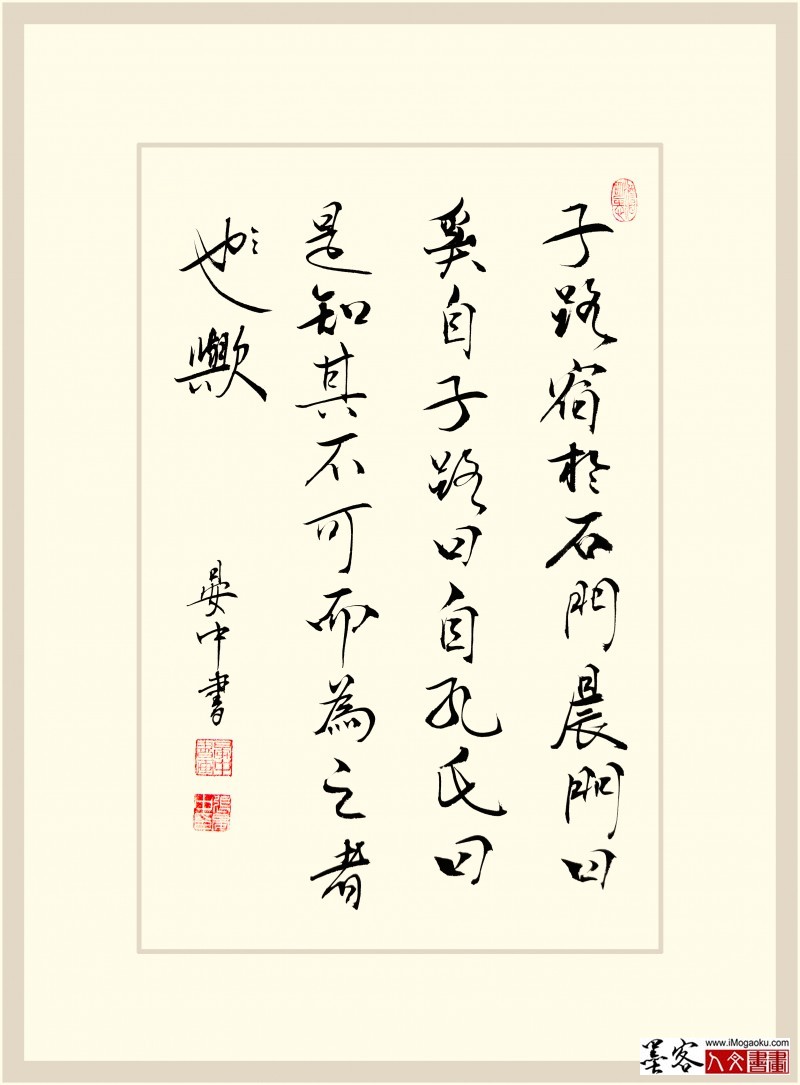 子路宿於石門晨門曰
奚自子路曰自孔氏曰
是知其不可而為之者
也歟
晏中書
墨客
www.iMogaoku.com
人文書畫